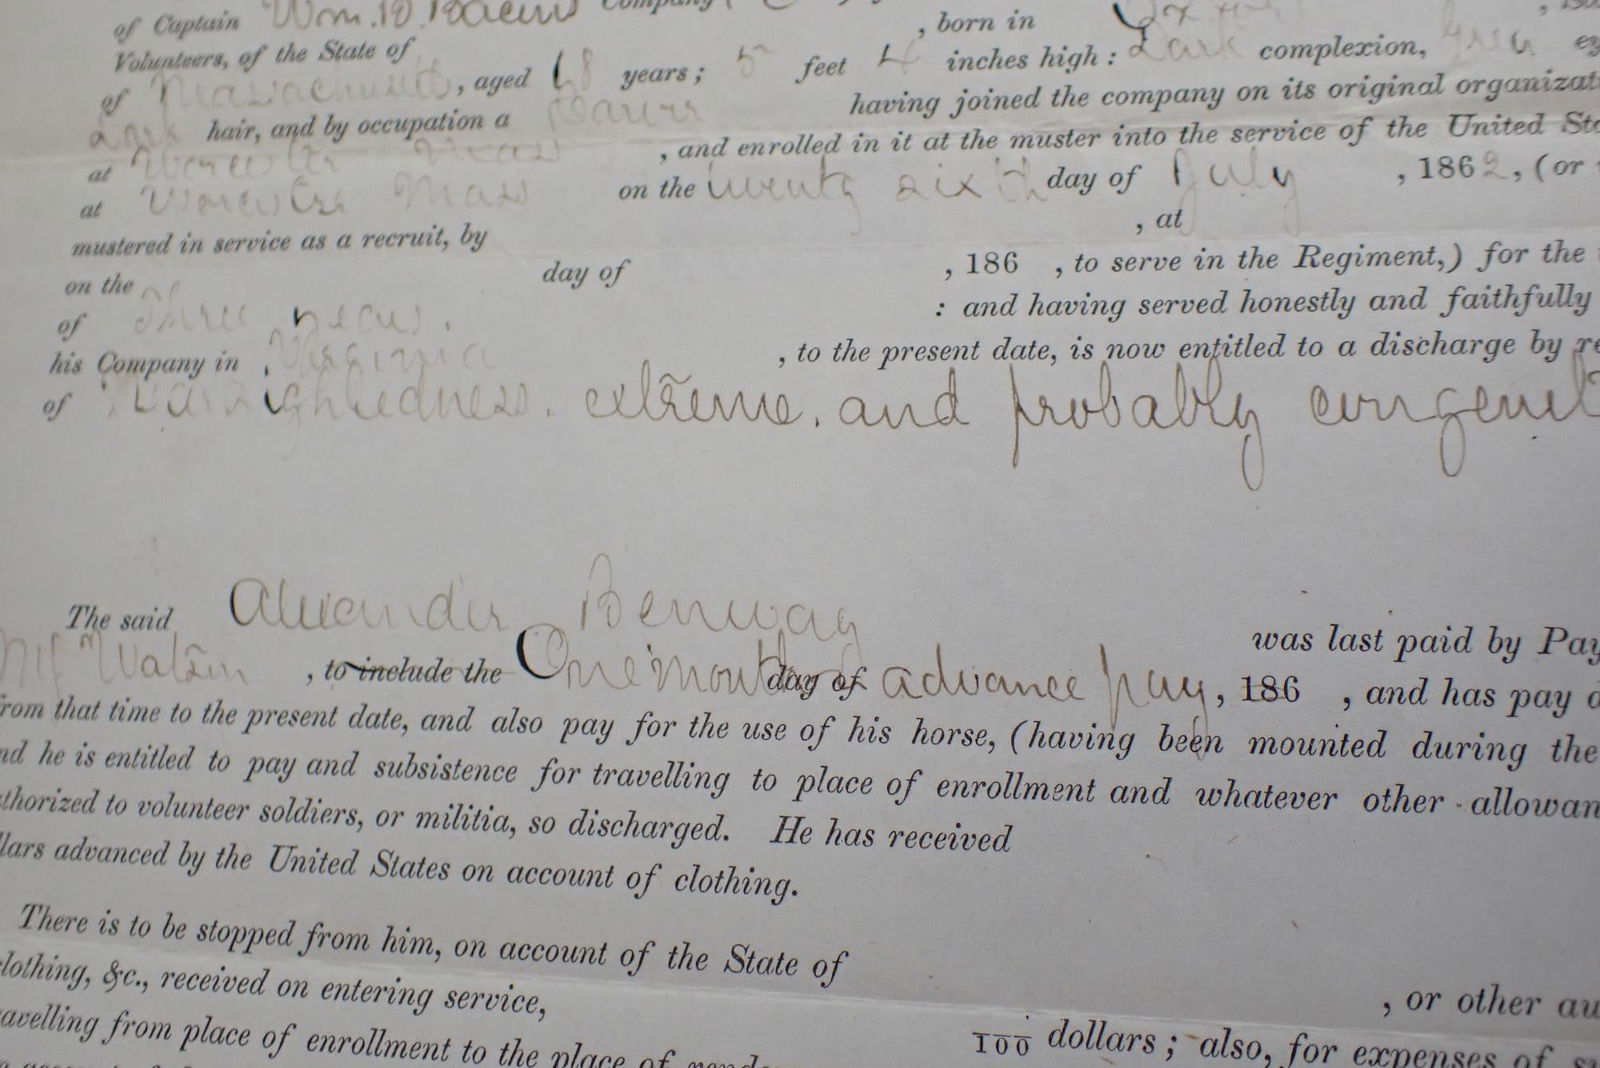 of Captain Wm. B. Bacon Company (
Volunteers, of the State of , born in
of Massachusetts, aged 18 years; 5 feet 4 inches high: Dark complexion,
Dark hair, and by occupation a having joined the company on its original organizat
at Worcester Mass , and enrolled in it at the muster into the service of the United Sta
at Worcester Mass on the twenty sixth day of July , 1862, (or
mustered in service as a recruit, by , at
on the day of , 186 , to serve in the Regiment,) for the
of Three years. : and having served honestly and faithfully
his Company in Virginia , to the present date, is now entitled to a discharge by re
of Nearsightedness. extreme, and probably congenit
The said Alexander Benway was last paid by Pay
Watson , to include the One month day of advance pay, 186 , and has pay d
from that time to the present date, and also pay for the use of his horse, (having been mounted during the
nd he is entitled to pay and subsistence for travelling to place of enrollment and whatever other allowan
thorized to volunteer soldiers, or militia, so discharged. He has received
llars advanced by the United States on account of clothing.
There is to be stopped from him, on account of the State of
lothing, &c., received on entering service, , or other au
avelling from place of enrollment to the place of rend 100 dollars; also, for expenses of su